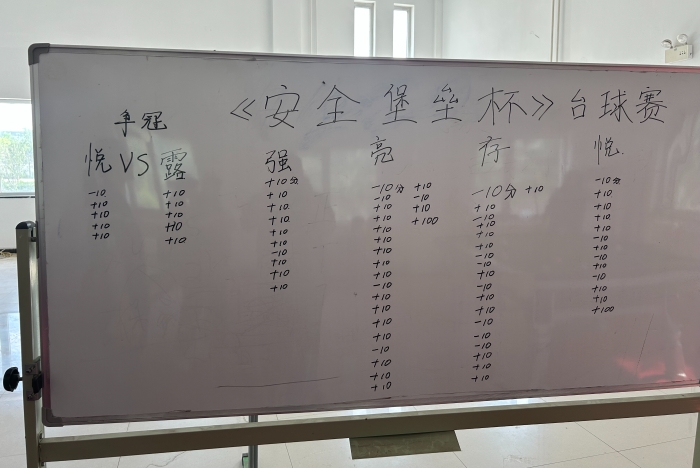 《安全堡垒杯》台球赛
争冠
悦 VS 露
-10 +10
+10 +10
+10 +10
+10 +10
+10 +10
强
+10分
+10
+10
+10
+10
+10
-10
+10
+10
+10
亮
-10分 +10
-10 -10
+10 +10
+10 +100
+10
+10
+10
-10
-10
+10
+10
+10
+10
-10
+10
+10
+10
存
-10分 +10
+10
-10
+10
+10
+10
-10
+10
-10
-10
+10
-10
-10
-10
+10
+10
+10
悦
-10分
+10
+10
+10
+10
-10
+10
-10
+10
+10
+10
+100